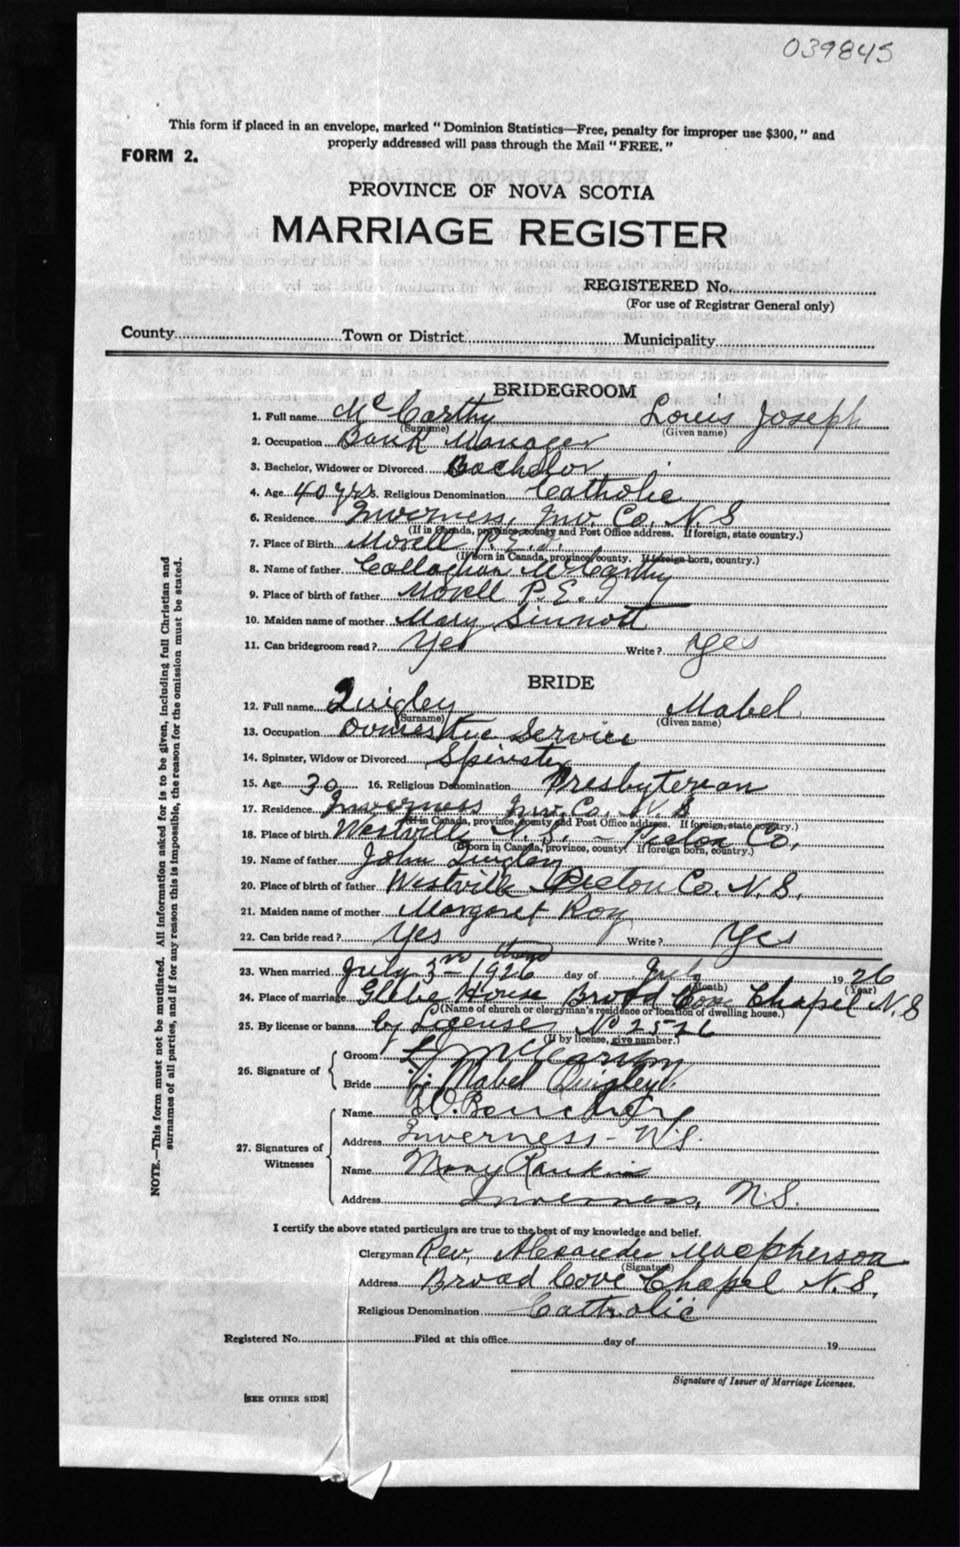 039845
This form if placed in an envelope, marked "Dominion Statistics—Free, penalty for improper use $300," and
properly addressed will pass through the Mail "FREE."
FORM 2.
PROVINCE OF NOVA SCOTIA
MARRIAGE REGISTER
REGISTERED No.
(For use of Registrar General only)
County Town or District Municipality
BRIDEGROOM
1. Full name McCarthy Louis Joseph
(Surname) (Given name)
2. Occupation Bank Manager
3. Bachelor, Widower or Divorced Bachelor
4. Age 40 yrs 5. Religious Denomination Catholic
6. Residence Inverness, Inv. Co. N.S
(If in Canada, province, county and Post Office address. If foreign, state country.)
7. Place of Birth Morell P.E.I.
(If born in Canada, province, county. If foreign born, country.)
8. Name of father Callaghan McCarthy
9. Place of birth of father Morell P.E.I
10. Maiden name of mother Mary Sinnott
11. Can bridegroom read? Yes Write? Yes
BRIDE
12. Full name Quigley Mabel
(Surname) (Given name)
13. Occupation Domestic Service
14. Spinster, Widow or Divorced Spinster
15. Age 30 16. Religious Denomination Presbyterian
17. Residence Inverness Inv. Co. N.S
(If in Canada, province, county and Post Office address. If foreign, state country.)
18. Place of birth Westville N.S. Pictou Co,
(If born in Canada, province, county. If foreign born, country.)
19. Name of father John Quigley
20. Place of birth of father Westville Pictou Co. N.S,
21. Maiden name of mother Margaret Roy
22. Can bride read? Yes Write? Yes
23. When married July 3rd 1926 day of July 1926
(Month) (Year)
24. Place of marriage Glebe House Broad Cove Chapel N.S
(Name of church or clergyman's residence or location of dwelling house.)
25. By license or banns by License No 2526
(If by license, give number.)
26. Signature of
Groom L J McCarthy
Bride Mabel Quigley
27. Signatures of Witnesses
Name
Address Inverness - N.S.
Name Mary Rankin
Address Inverness, N.S.
I certify the above stated particulars are true to the best of my knowledge and belief.
Clergyman Rev. Alexander Macpherson
(Signature)
Address Broad Cove Chapel N.S,
Religious Denomination Catholic
Registered No. Filed at this office day of 19
Signature of Issuer of Marriage Licenses.
[SEE OTHER SIDE]
NOTE.—This form must not be mutilated. All information asked for is to be given, including full Christian and
surnames of all parties, and if for any reason this is impossible, the reason for the omission must be stated.